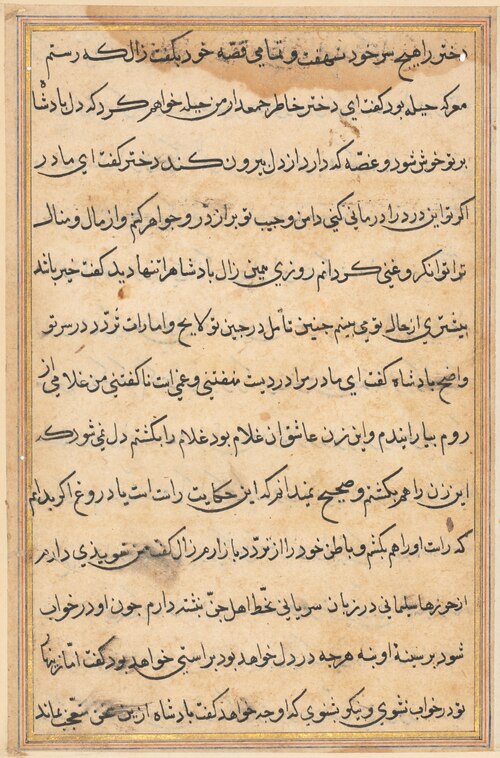 دختر را هیچ سر خود نهفت و تمامی قصه خود بگفت زال که رستم
معرکه حیله بود گفت ای دختر خاطر جمعدار من حیله خواهم کرد که دل پادشاه
بر تو خوش شود و غصه که دارد از دل بیرون کند دختر گفت ای مادر
اگر تو این درد را درمانی کنی دامن و جیب تو پر از در و جواهر کنم و از مال و منال
ترا توانکر و غنی کردانم روزی همین زال پادشاه را تنها دید گفت خیر باشد
بیشتری از حال توی بینم جنین تأمل در جبین تو لایح و امارات تردد در سر تو
واضح پادشاه گفت ای مادر مرا دردیست نهفتنی و غمی است ناگفتنی من غلامی از
روم بیارانیدم و این زن عاشق ان غلام بود غلام را بکشتم دل غمی شود که
این زن را هم بکشتم و صحیح نمیدانم که این حکایت راست است یا دروغ اگر بدانم
که راست او را هم بکشم و باطن خود را از تردد بازارم زال گفت من تعویذی دارم
از حرزهاء سلیمانی در زبان سریانی بخط اهل جن نبشته دارم جون او در خواب
شود بر سینهٔ او بنه هرجه در دل خواهد بود براستی خواهد بود گفت اما زینهار
تو در خواب نشوی و نیکو شنوی که او جه خواهد گفت پادشاه ازین سخن متعجب بماند